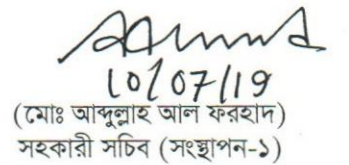 10/07/19
(মোঃ আব্দুল্লাহ আল ফরহাদ)
সহকারী সচিব (সংস্থাপন-১)